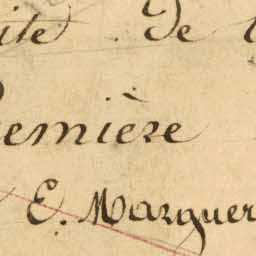 ite. De l
remière
E. Marguer